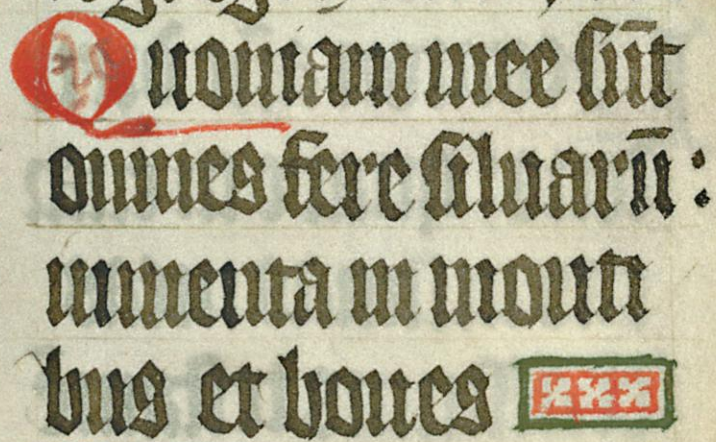 Quoniam mee sūt
omnes fere siluarū :
iumenta in monti
bus et boues